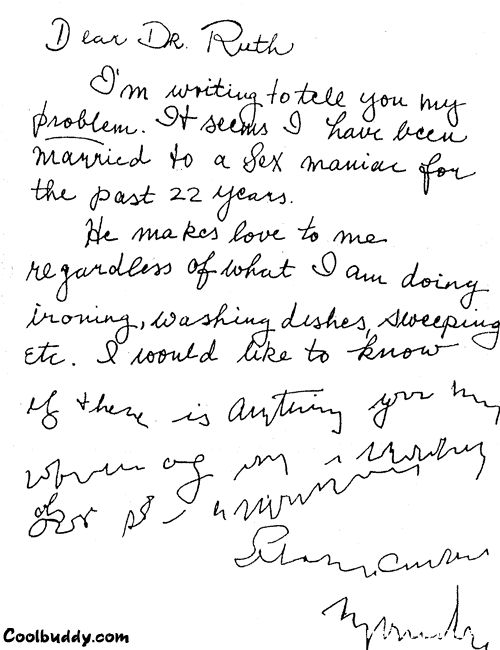 Dear Dr. Ruth
I'm writing to tell you my
problem. It seems I have been
married to a sex maniac for
the past 22 years.
He makes love to me
regardless of what I am doing
ironing, washing dishes, sweeping
etc. I would like to know
if there is anything you
Coolbuddy.com